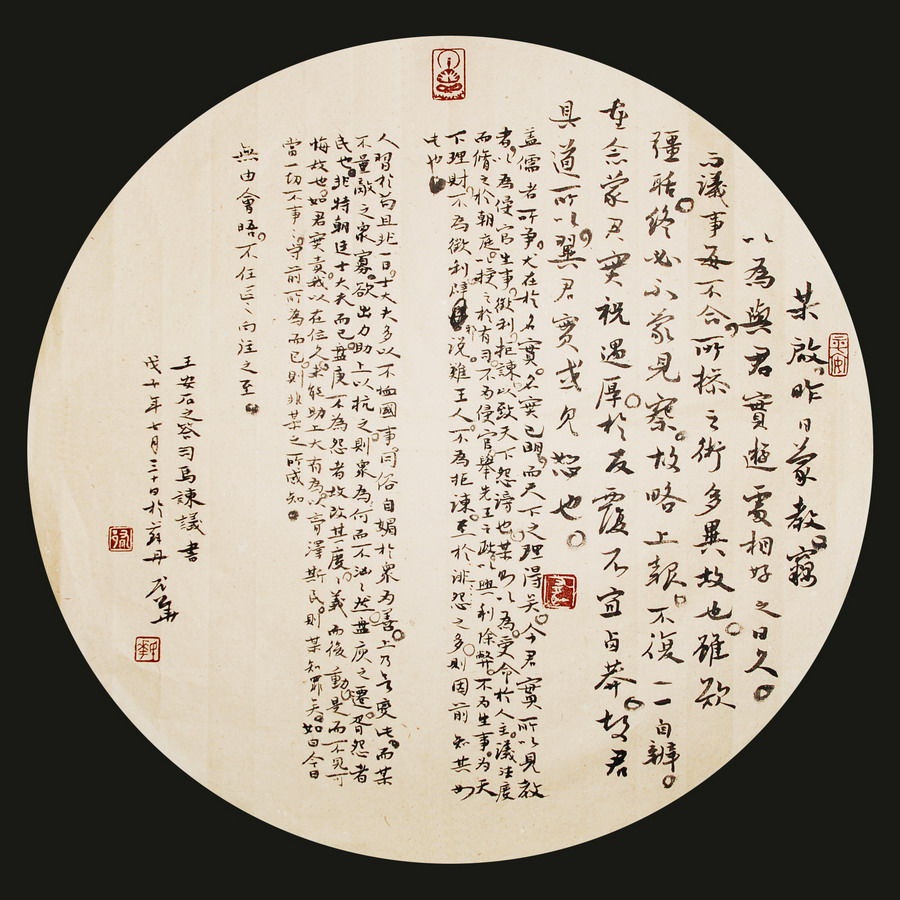 某啟。昨日蒙教。竊
以為與君實遊處相好之日久。
而議事每不合，所操之術多異故也。雖欲
彊聒。終必不蒙見察。故略上報。不復一一自辨。
重念蒙君實視遇厚。於反覆不宜鹵莽。故君
具道所以，冀君實或見恕也。
蓋儒者所爭。尤在於名實。名實已明，而天下之理得矣。今君實所以見教
者，以為侵官生事徵利拒諫，以致天下怨謗也。某則以為受命於人主。議法度
而脩之於朝庭。以授之於有司。不為侵官舉先王之政。以興利除弊。不為生事。為天
下理財不為徵利闢說難壬人。不為拒諫。至於誹怨之多。則固前知其如
此也。
人習於苟且非一日。士大夫多以不恤國事。同俗自媚於衆為善。上乃欲變此。而某
不量敵之衆寡。欲出力助上以抗之則衆為何而不洶洶然盤庚之遷。胥怨者
民也。非特朝廷士大夫而已。盤庚不為怨者故改其度。義而後動。是而不見可
悔故也。如君實責我以在位久。未能助上大有為。以膏澤斯民。則某知罪矣。如曰今日
當一切不事事守前所為而已。則非某之所敢知。
無由會晤。不任區區向往之至
王安石之答司馬諫議書
戊子年七月三十日於